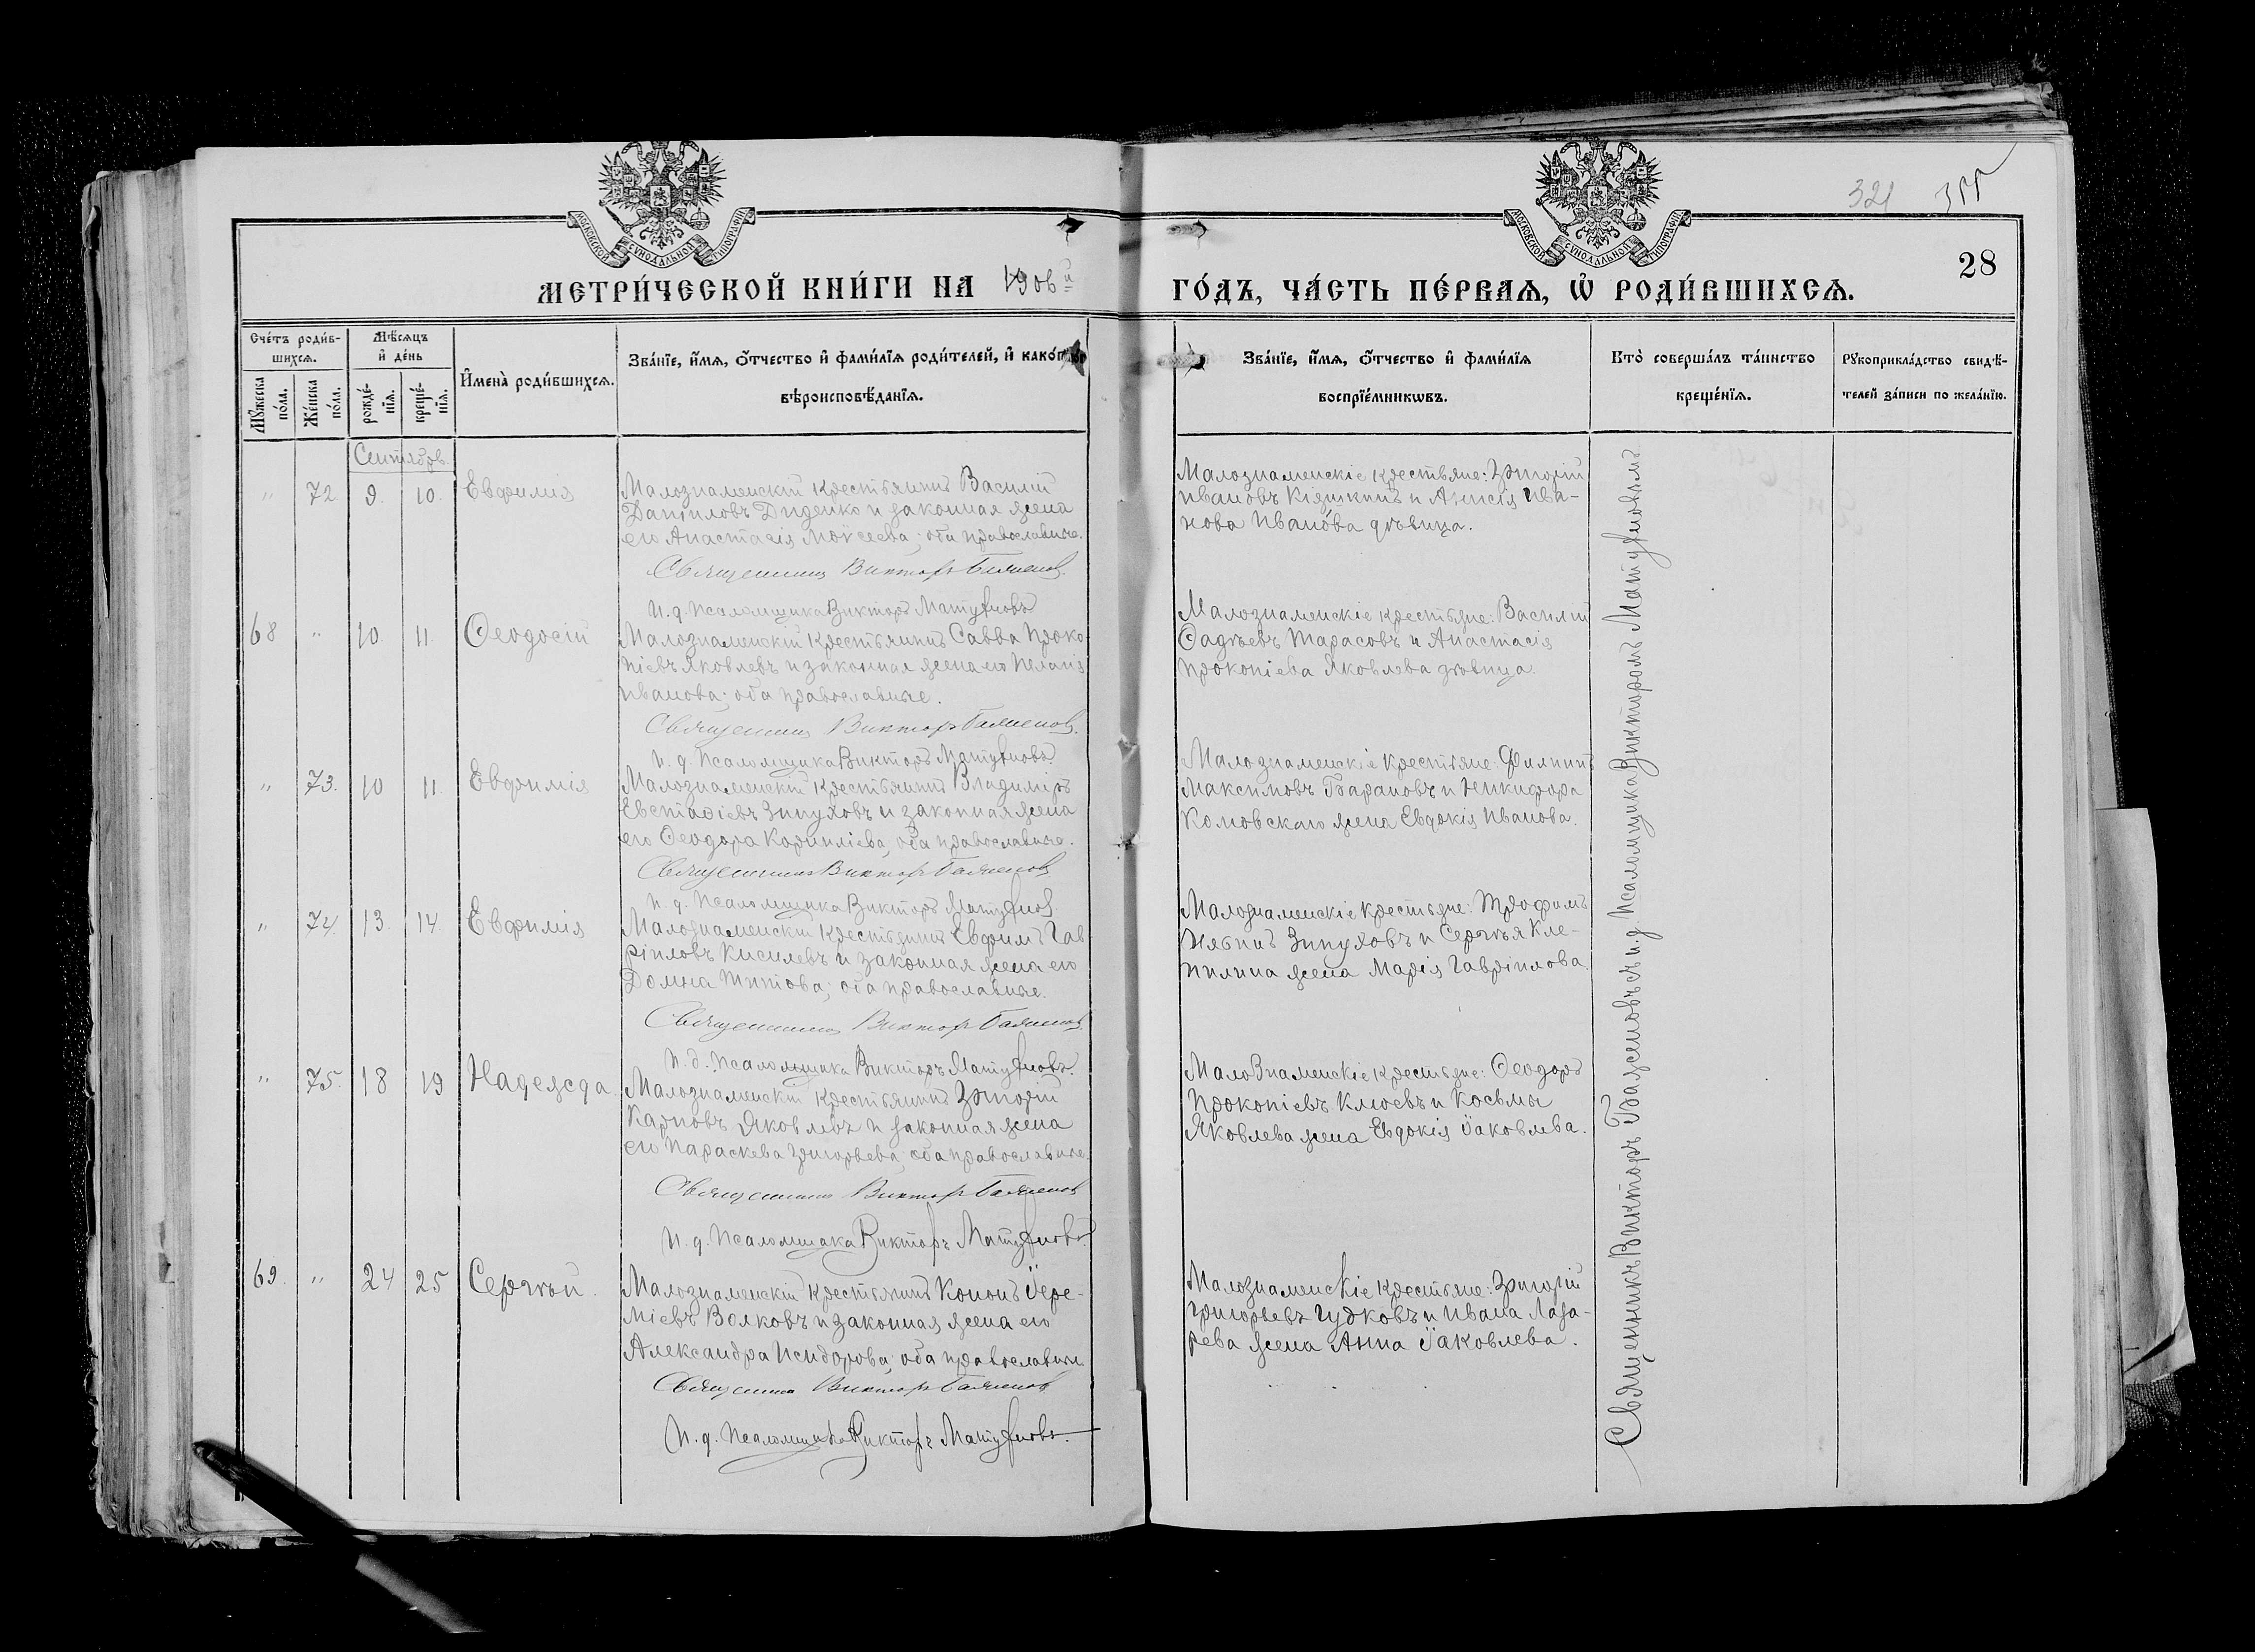 МОСКОВСКОЙ СѴНОДАЛЬНОЙ ТИПОГРАФІИ
МОСКОВСКОЙ СѴНОДАЛЬНОЙ ТИПОГРАФІИ
321
28
МЕТРИ́ЧЕСКОЙ КНИ́ГИ НА 1906 й
ГО́ДЪ, ЧА́СТЬ ПЕ́РВАѦ, Ѡ҆ РОДИ́ВШИХСѦ.
Сче́тъ роди́в-
шихсѧ.
Мѣ́сѧцъ
и҆ де́нь
Мꙋ́жеска по́ла.
Же́нска по́ла.
рожде́-
нїѧ.
креще́-
нїѧ.
И҆мена̀ роди́вшихсѧ.
Зва́нїе, и҆́мѧ, ѻ҆́тчество и҆ фами́лїѧ роди́телей, и҆ како́гѡ
вѣроисповѣ́данїѧ.
Зва́нїе, и҆́мѧ, ѻ҆́тчество и҆ фами́лїѧ
воспрїе́мникѡвъ.
Кто̀ соверша́лъ та́инство
креще́нїѧ.
Рꙋкоприкла́дство свидѣ́-
телей за́писи по жела́нїю.
Сентябрь.
" 72. 9. 10. Евфимія
Малознаменскій крестьянинъ Василій
Даніиловъ Диденко и законная жена
его Анастасія Моѵсеева; оба православные.
Священникъ Викторъ Баженов.
И. д. Псаломщика Викторъ Матуфновъ
Малознаменскіе крестьяне: Григорій
Ивановъ Кіяшкинъ и Анисія Ива-
нова Иванова дѣвица.
68 " 10. 11. Ѳеодосій
Малознаменскій крестьянинъ Савва Проко-
піевъ Яковлевъ и законная жена его Пелагія
Иванова; оба православные.
Священникъ Викторъ Баженов.
И. д. Псаломщика Викторъ Матуфновъ
Малознаменскіе крестьяне: Василій
Ѳадѣевъ Тарасовъ и Анастасія
Прокопіева Яковлева дѣвица.
" 73. 10 11. Евфимія
Малознаменскій крестьянинъ Владиміръ
Евстаѳіевъ Зинуховъ и законная жена
его Ѳеодора Корниліева, оба православные.
Священникъ Викторъ Баженов
И. д. Псаломщика Викторъ Матуфнов
Малознаменскіе крестьяне: Филиппъ
Максимовъ Барановъ и Никифора
Комовскаго жена Евдокія Иванова.
" 74. 13. 14. Евфимія
Малознаменскій крестьянинъ Евфимъ Гав-
ріиловъ Киселевъ и законная жена его
Домна Титова; оба православные.
Священникъ Викторъ Баженов
И. д. Псаломщика Викторъ Матуфновъ.
Малознаменскіе крестьяне: Трофимъ
Зинуховъ и Сергѣя Кле-
пилина жена Марія Гавріилова.
" 75. 18 19 Надежда
Малознаменскій крестьянинъ Григорій
Карповъ Яковлевъ и законная жена
его Параскева Григорьева; оба православные
Священникъ Викторъ Баженов
И. д. Псаломщика Викторъ Матуфновъ.
МалоЗнаменскіе крестьяне: Ѳеодоръ
Прокопіевъ Клюевъ и Косьмы
Яковлева жена Евдокія Іаковлева.
69. " 24 25 Сергѣй.
Малознаменскій крестьянинъ Кононъ Іере-
міевъ Волковъ и законная жена его
Александра Исидорова; оба православные
Священникъ Викторъ Баженов
И. д. Псаломщика Викторъ Матуфновъ.
Малознаменскіе крестьяне: Григорій
Григорьевъ Гудковъ и Ивана Лаза-
рева жена Анна Іаковлева.
Священникъ Викторъ Баженовъ съ и. д. Псаломщика Викторомъ Матуфновымъ